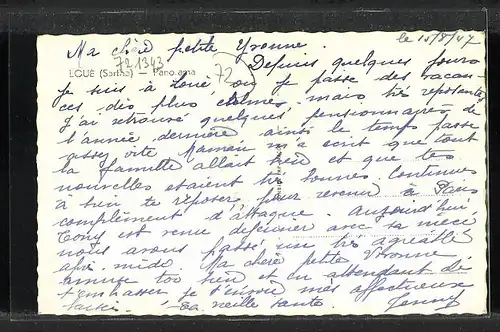 le 15/8/47
Ma chère petite Yvonne.
721343
LOUÉ (Sartha) — Panorama
72
Depuis quelques jours
je suis à Loué, où je passe des vacan-
ces des plus calmes mais très reposantes
J'ai retrouvé quelques pensionnaires de
l'année dernière ainsi le temps passe
assez vite Maman m'a écrit que tout
la famille allait bien et que tes
nouvelles étaient très bonnes. Continues
à bien te reposer, pour revenir à Paris
complètement d'attaque. Aujourd'hui
Tony est venu déjeuner avec sa nièce
nous avons passé un très agréable
après-midi. Ma chère petite Yvonne
bien et en attendant de
t'embrasser, je t'envoie mes affectueux
Ta vieille tante. Jenny